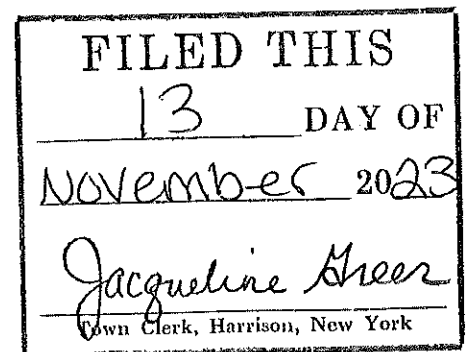 FILED THIS
13 DAY OF
November 2023
Jacqueline Greer
Town Clerk, Harrison, New York